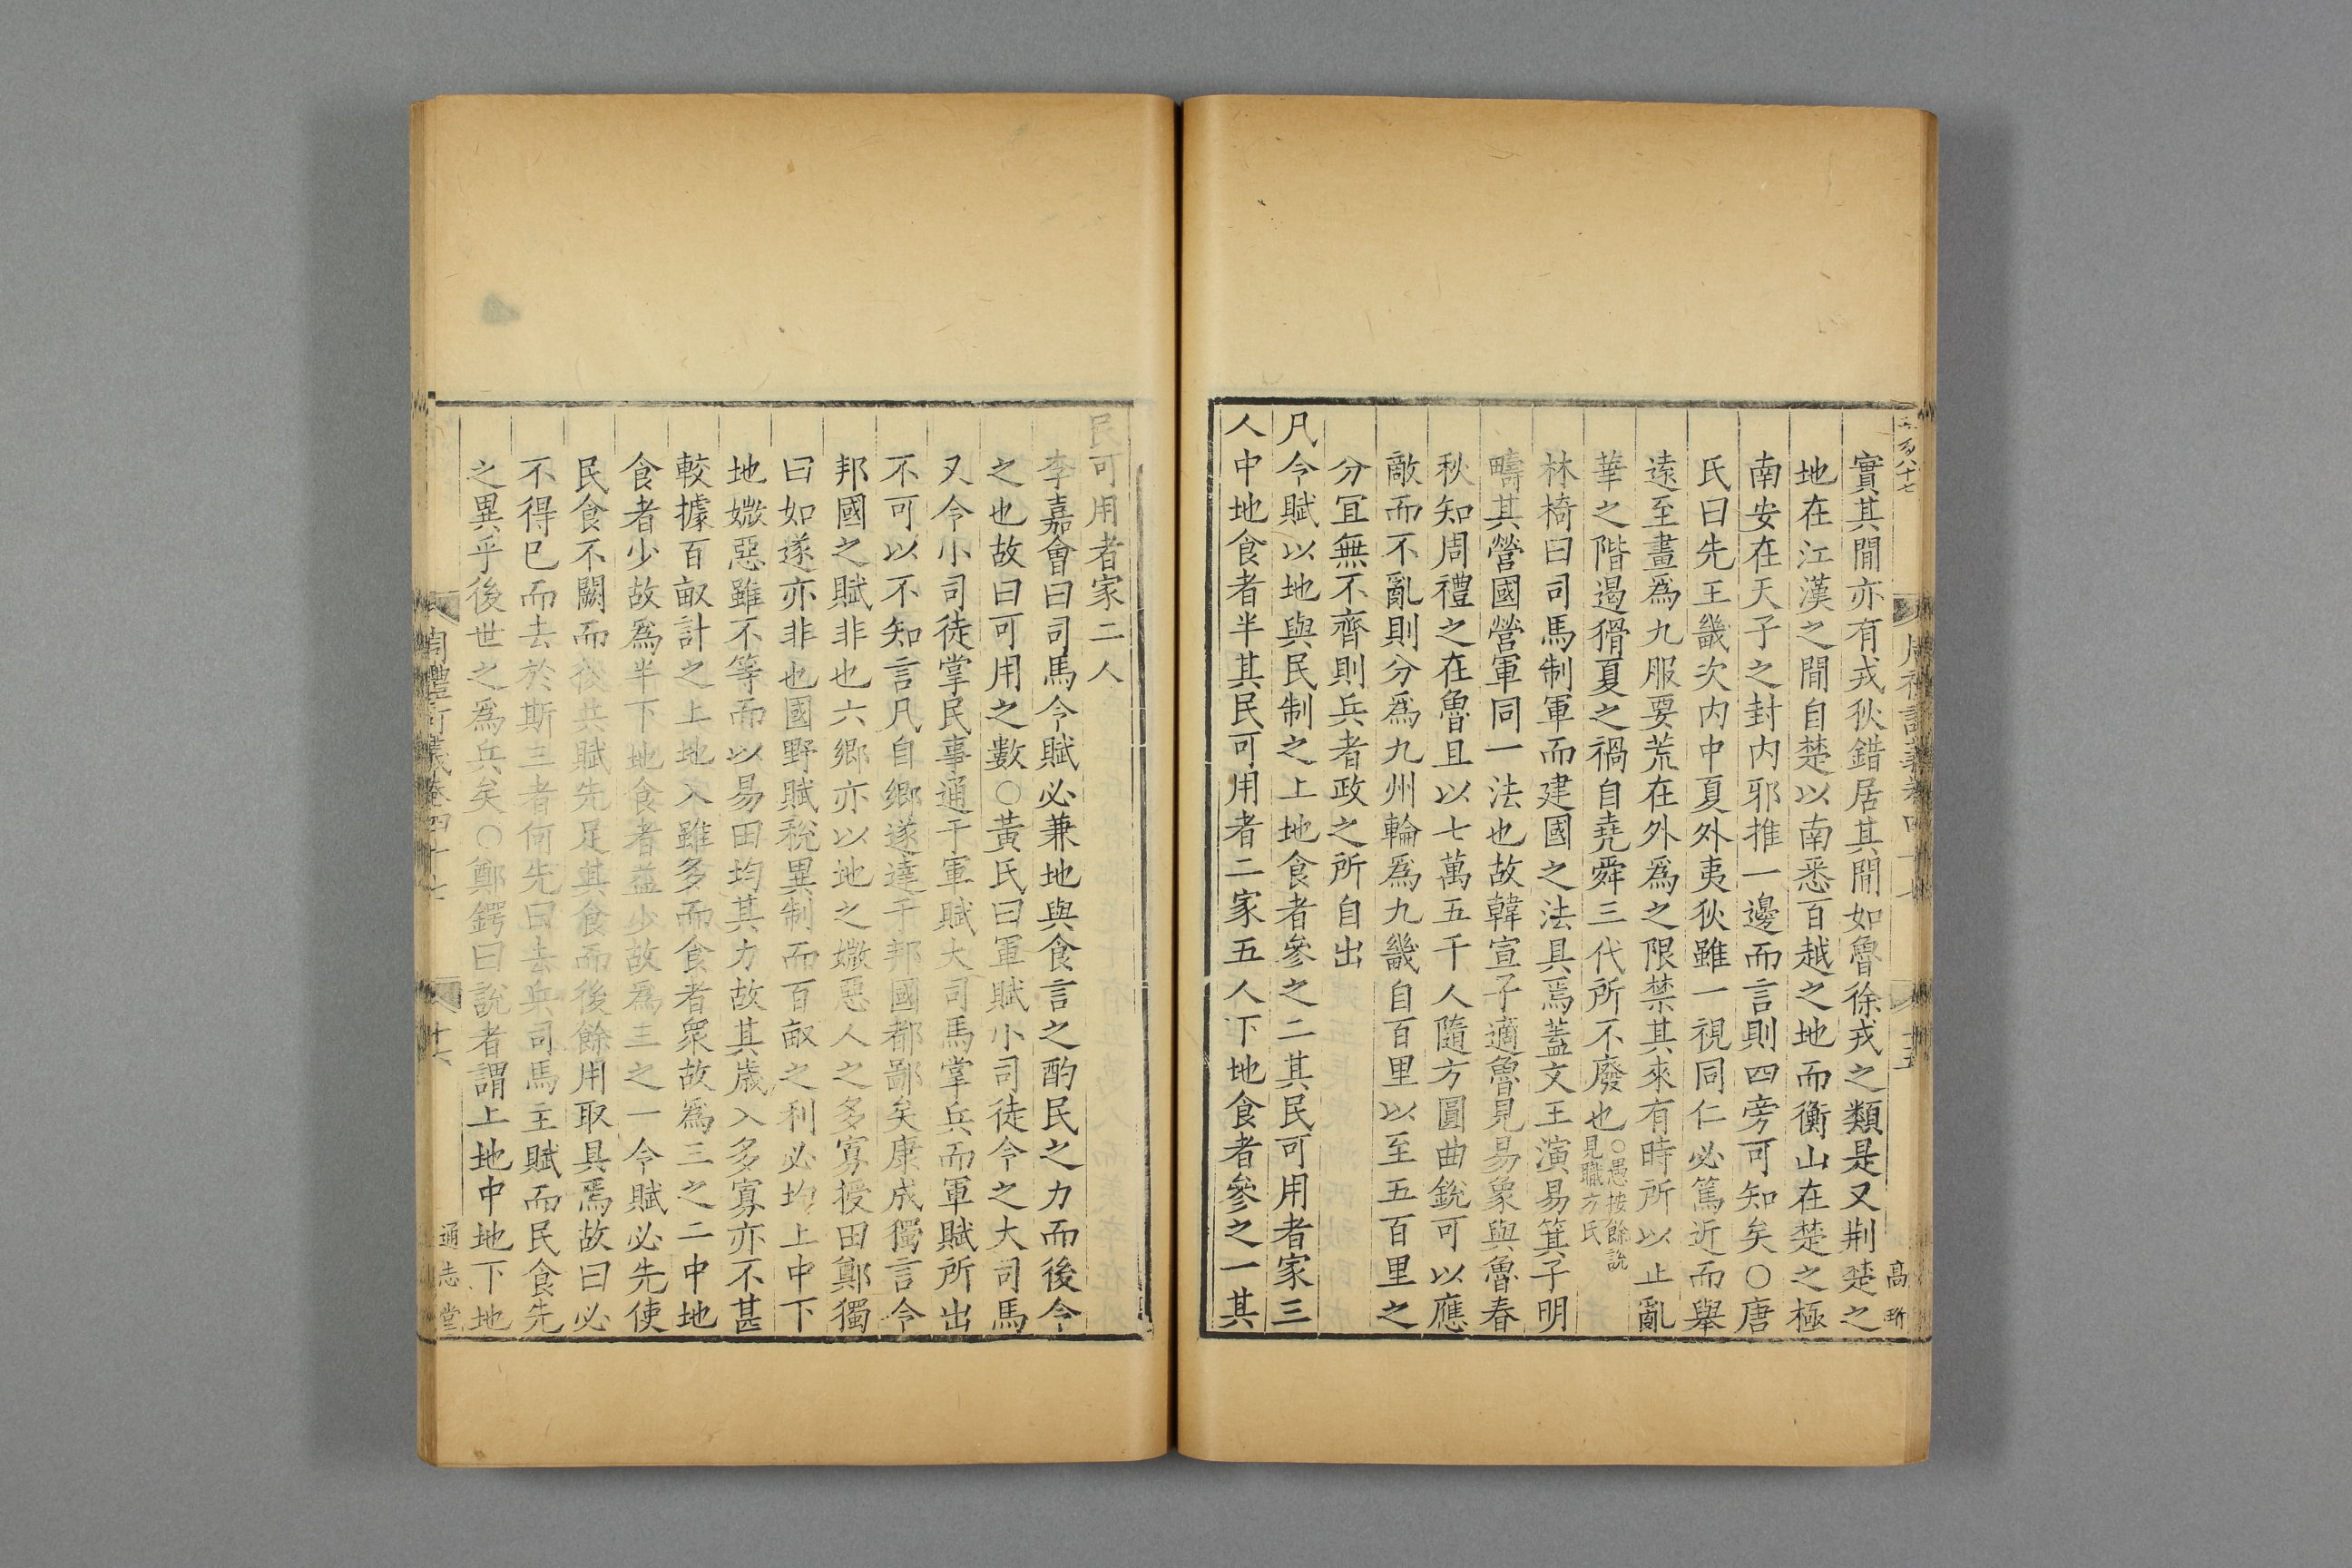 六百八十七
實其間亦有戎狄錯居其間如魯徐戎之類是又荆楚之
地在江漢之間自楚以南悉百越之地而衡山在楚之極
南安在天子之封内邪推一邊而言則四旁可知矣○唐
氏曰先王畿次内中夏外夷狄雖一視同仁必篤近而舉
遠至畫為九服要荒在外為之限禁其來有時所以止亂
華之階遏猾夏之禍自堯舜三代所不廢也○愚按餘説見職方氏
林椅曰司馬制軍而建國之法具焉蓋文王演易箕子明
疇其營國營軍同一法也故韓宣子適魯見易象與魯春
秋知周禮之在魯且以七萬五千人隨方圓曲銳可以應
敵而不亂則分爲九州輪爲九畿自百里以至五百里之
分宜無不齊則兵者政之所自出
凡令賦以地與民制之上地食者參之二其民可用者家三
人中地食者半其民可用者二家五人下地食者參之一其
民可用者家二人
李嘉會曰司馬令賦必兼地與食言之酌民之力而後令
之也故曰可用之數○黃氏曰軍賦小司徒令之大司馬
又令小司徒掌民事通于軍賦大司馬掌兵而軍賦所出
不可以不知言凡自鄉遂達于邦國都鄙矣康成獨言令
邦國之賦非也六鄉亦以地之媺惡人之多寡授田鄭獨
曰如遂亦非也國野賦稅異制而百畝之利必均上中下
地媺惡雖不等而以易田均其力故其歲入多寡亦不甚
較據百畝計之上地入雖多而食者衆故爲三之二中地
食者少故爲半下地食者益少故爲三之一令賦必先使
民食不闕而後共賦先足其食而後餘用取具焉故曰必
不得已而去於斯三者何先曰去兵司馬主賦而民食先
之異乎後世之爲兵矣○鄭鍔曰說者謂上地中地下地
周禮訂義卷四十七
十六
通志堂